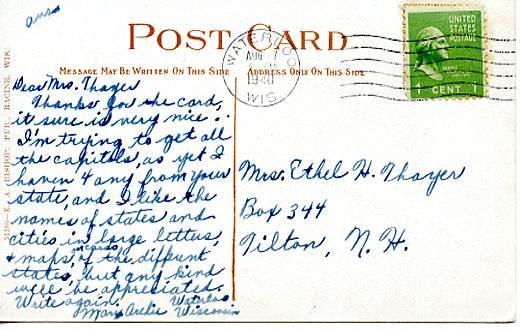 ans
POST CARD
MESSAGE MAY BE WRITTEN ON THIS SIDE
ADDRESS ONLY ON THIS SIDE
WATERLOO
AUG
1940
WIS.
UNITED
STATES
POSTAGE
1 CENT 1
BISHOP, PUB., RACINE, WIS.
Dear Mrs. Thayer
Thanks for the card,
it sure is very nice..
I'm trying to get all
the capitols, as yet I
haven 4 any from your
state, and I like the
names of states and
cities in large letters,
on cards
+ maps, of the different
states, but any kind
will be appreciated.
Write again.
Waterloo
Wisconsin
Mrs. Ethel H. Thayer
Box 344
Tilton, N. H.